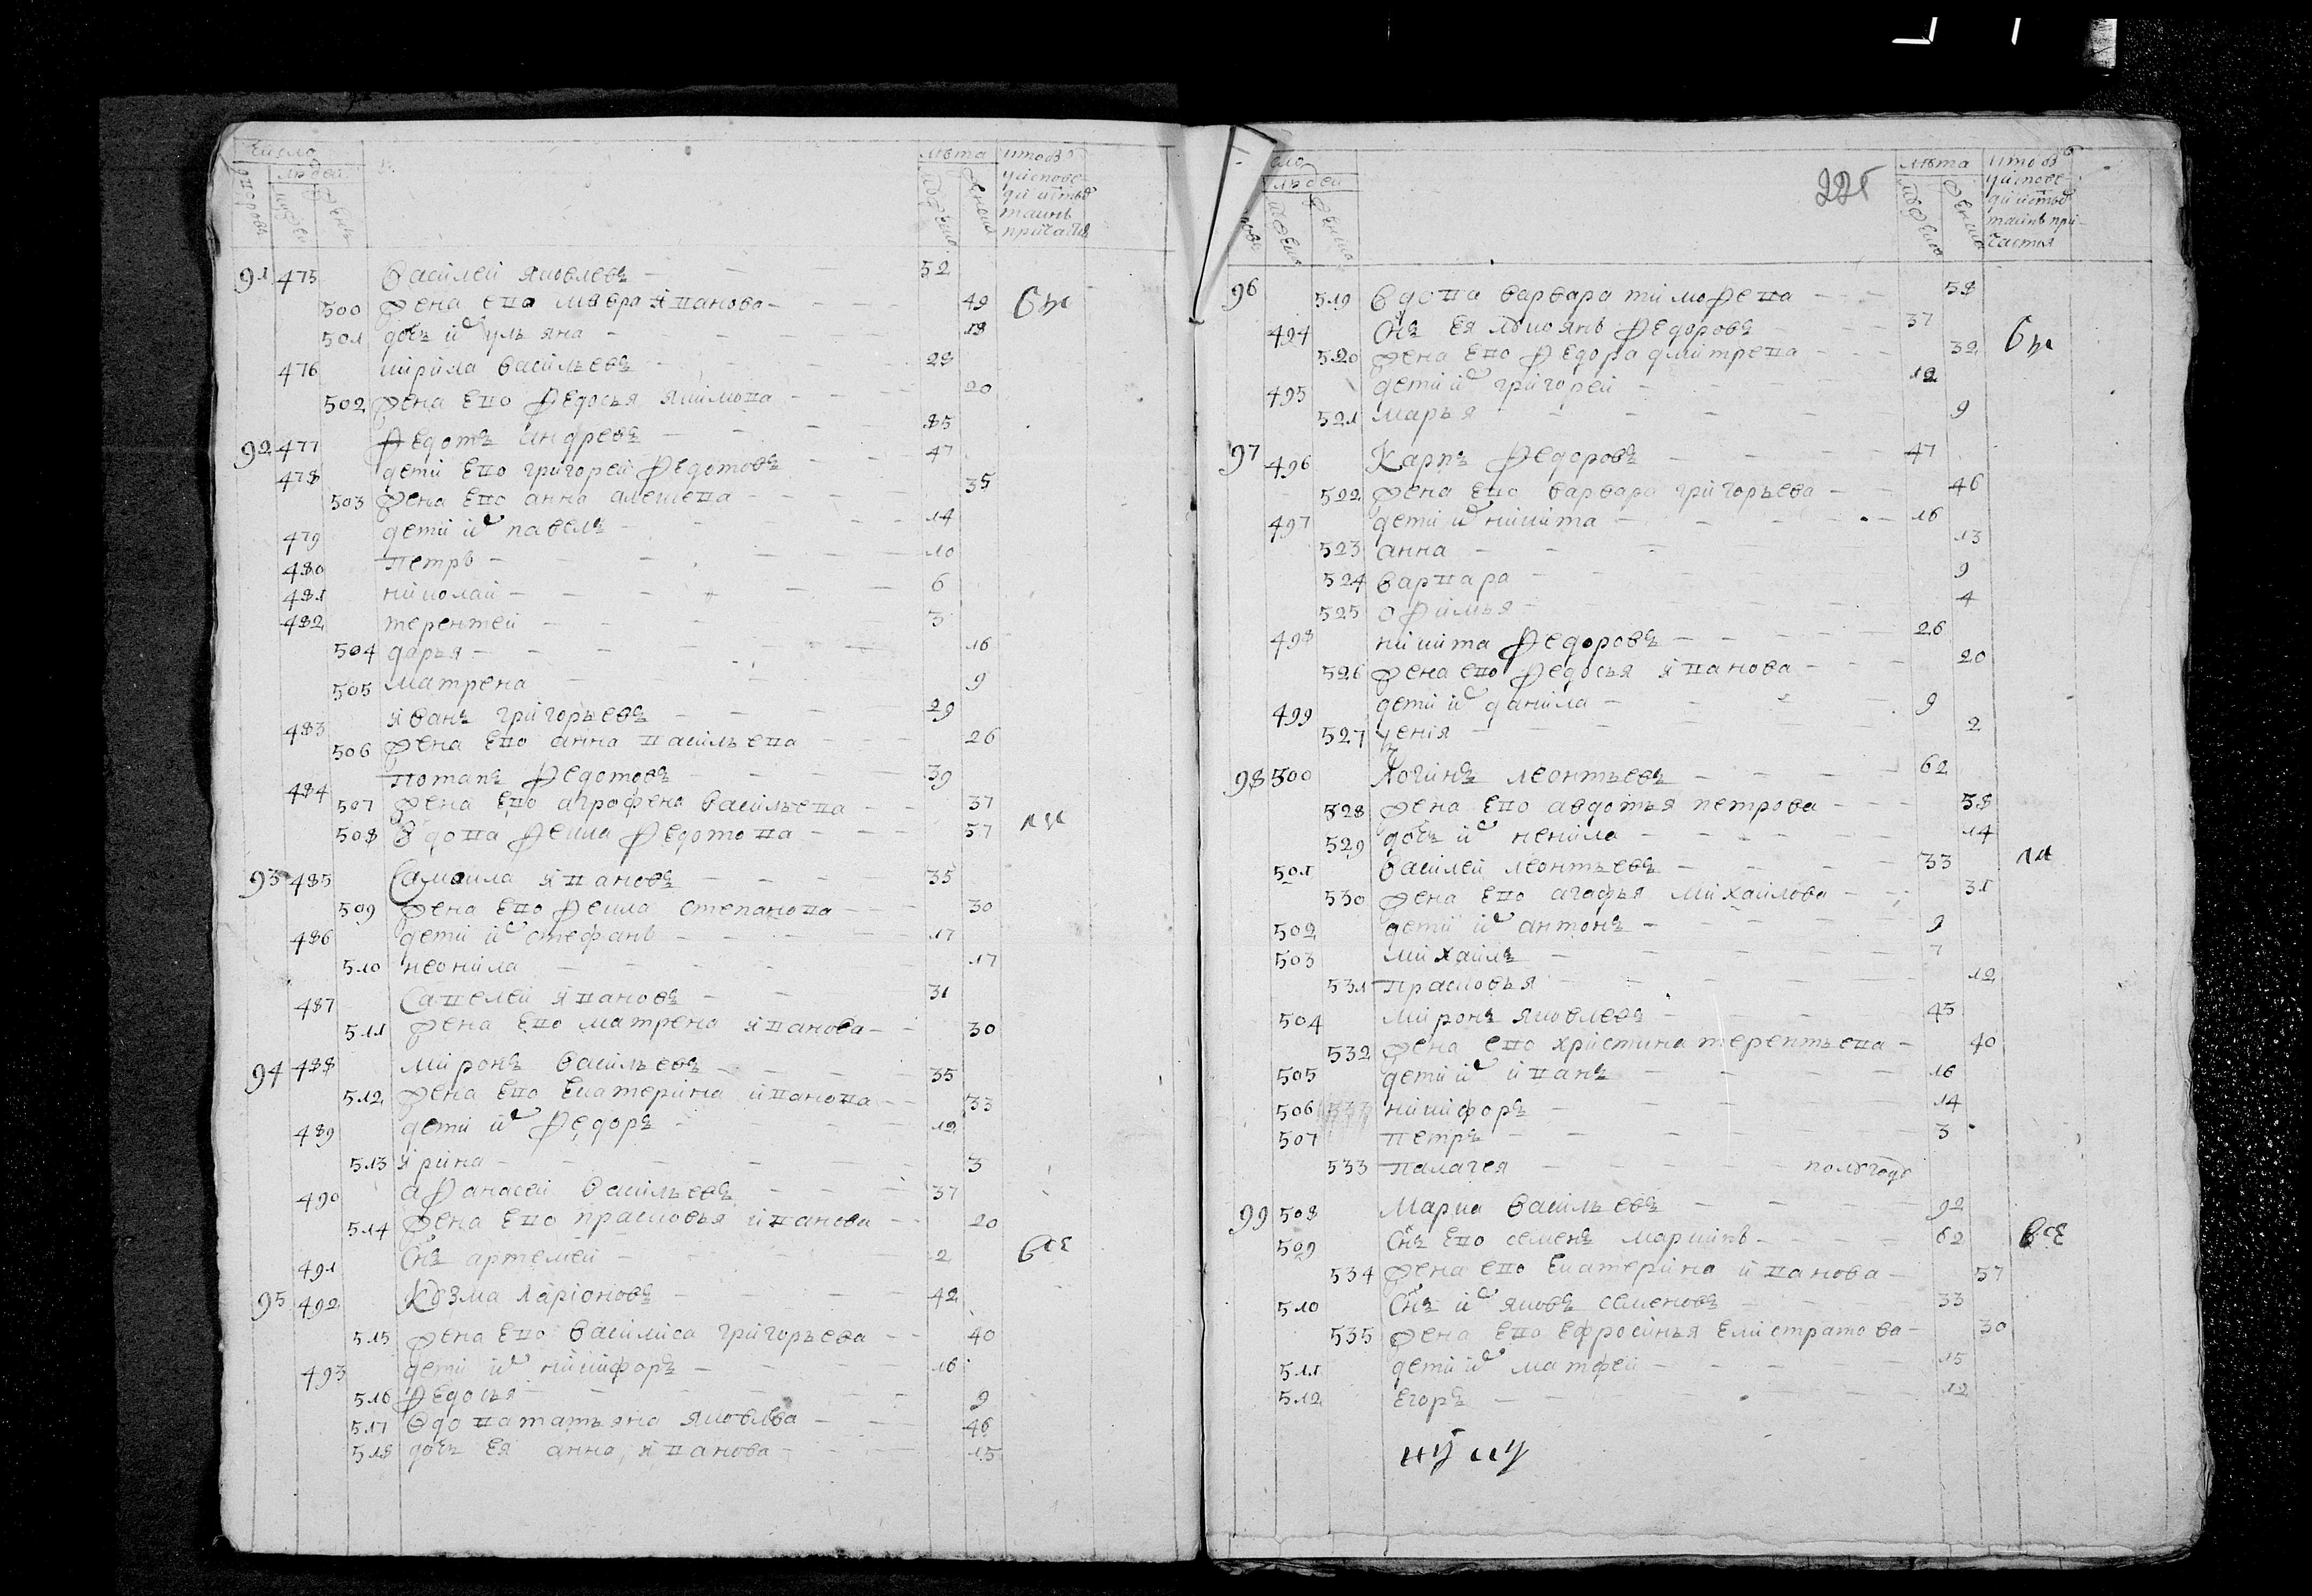 число
людей
дворовъ
мужеск
женск
лѣта
мужеска
женска
91 475 Василей яковлевъ 52
500 жена ево мавра яванова 49
501 дочь их ульяна 18
476 кирила васильевъ 28
502 жена ево федосья якимова 20
92 477 Федотъ андревъ 85
478 дети ево григорей федотовъ 47
503 жена ево анна алексева 35
479 дети их павелъ 14
480 петръ 10
481 николай 6
482 терентей 3
504 дарья 16
505 матрена 9
483 яванъ григорьевъ 29
506 жена ево анна васильева 26
484 потапъ федотовъ 39
507 жена ево агрофена васильева 37
508 вдова фекла федотова 57
93 485 Самоила явановъ 35
509 жена ево фекла степанова 30
486 дети их стефанъ 17
510 неонила 17
487 Савелей явановъ 31
511 жена ево матрена яванова 30
94 488 миронъ васильевъ 35
512 жена ево екатерина иванова 33
489 дети их федоръ 12
513 ярина 3
490 афанасей васильевъ 37
514 жена ево прасковья иванова 20
491 снъ артемей 2 все
95 492 Кузма ларионовъ 42
515 жена ево василиса григорьева 40
493 дети их никифоръ 16
516 федосья 9
517 вдова татьяна яковлва 46
518 дочь ея анна яванова 15
людей
226
лѣта
96 519 вдова варвара тимофева 58
494 снъ ея лукоянъ федоровъ 37
520 жена ево федора дмитрева 32
495 дети их григорей 12
521 марья 9
97 496 Карпъ федоровъ 47
522 жена ево варвара григорьева 46
497 дети их никита 16
523 анна 13
524 варвара 9
525 офимья 4
498 никита федоровъ 26
526 жена ево федосья яванова 20
499 дети их данила 9
527 ксенія 2
98 500 логинъ леонтьевъ 62
528 жена ево авдотья петрова 58
529 дочь их ненила 14
501 василей леонтьевъ 33
530 жена ево агафья михаилова 31
502 дети их антонъ 9
503 михаилъ 7
531 прасковья 12
504 миронъ яковлевъ 45
532 жена ево христина терентьева 40
505 дети их иванъ 16
506 никифоръ 14
507 петръ 3
533 палагея полугоду
99 508 Марка васильевъ 92
509 снъ ево семенъ маркинъ 62 все
534 жена ево екатерина иванова 57
510 снъ их яковъ семеновъ 33
535 жена ево ефросинья елистратова 30
511 дети их матфей 15
512 егоръ 12